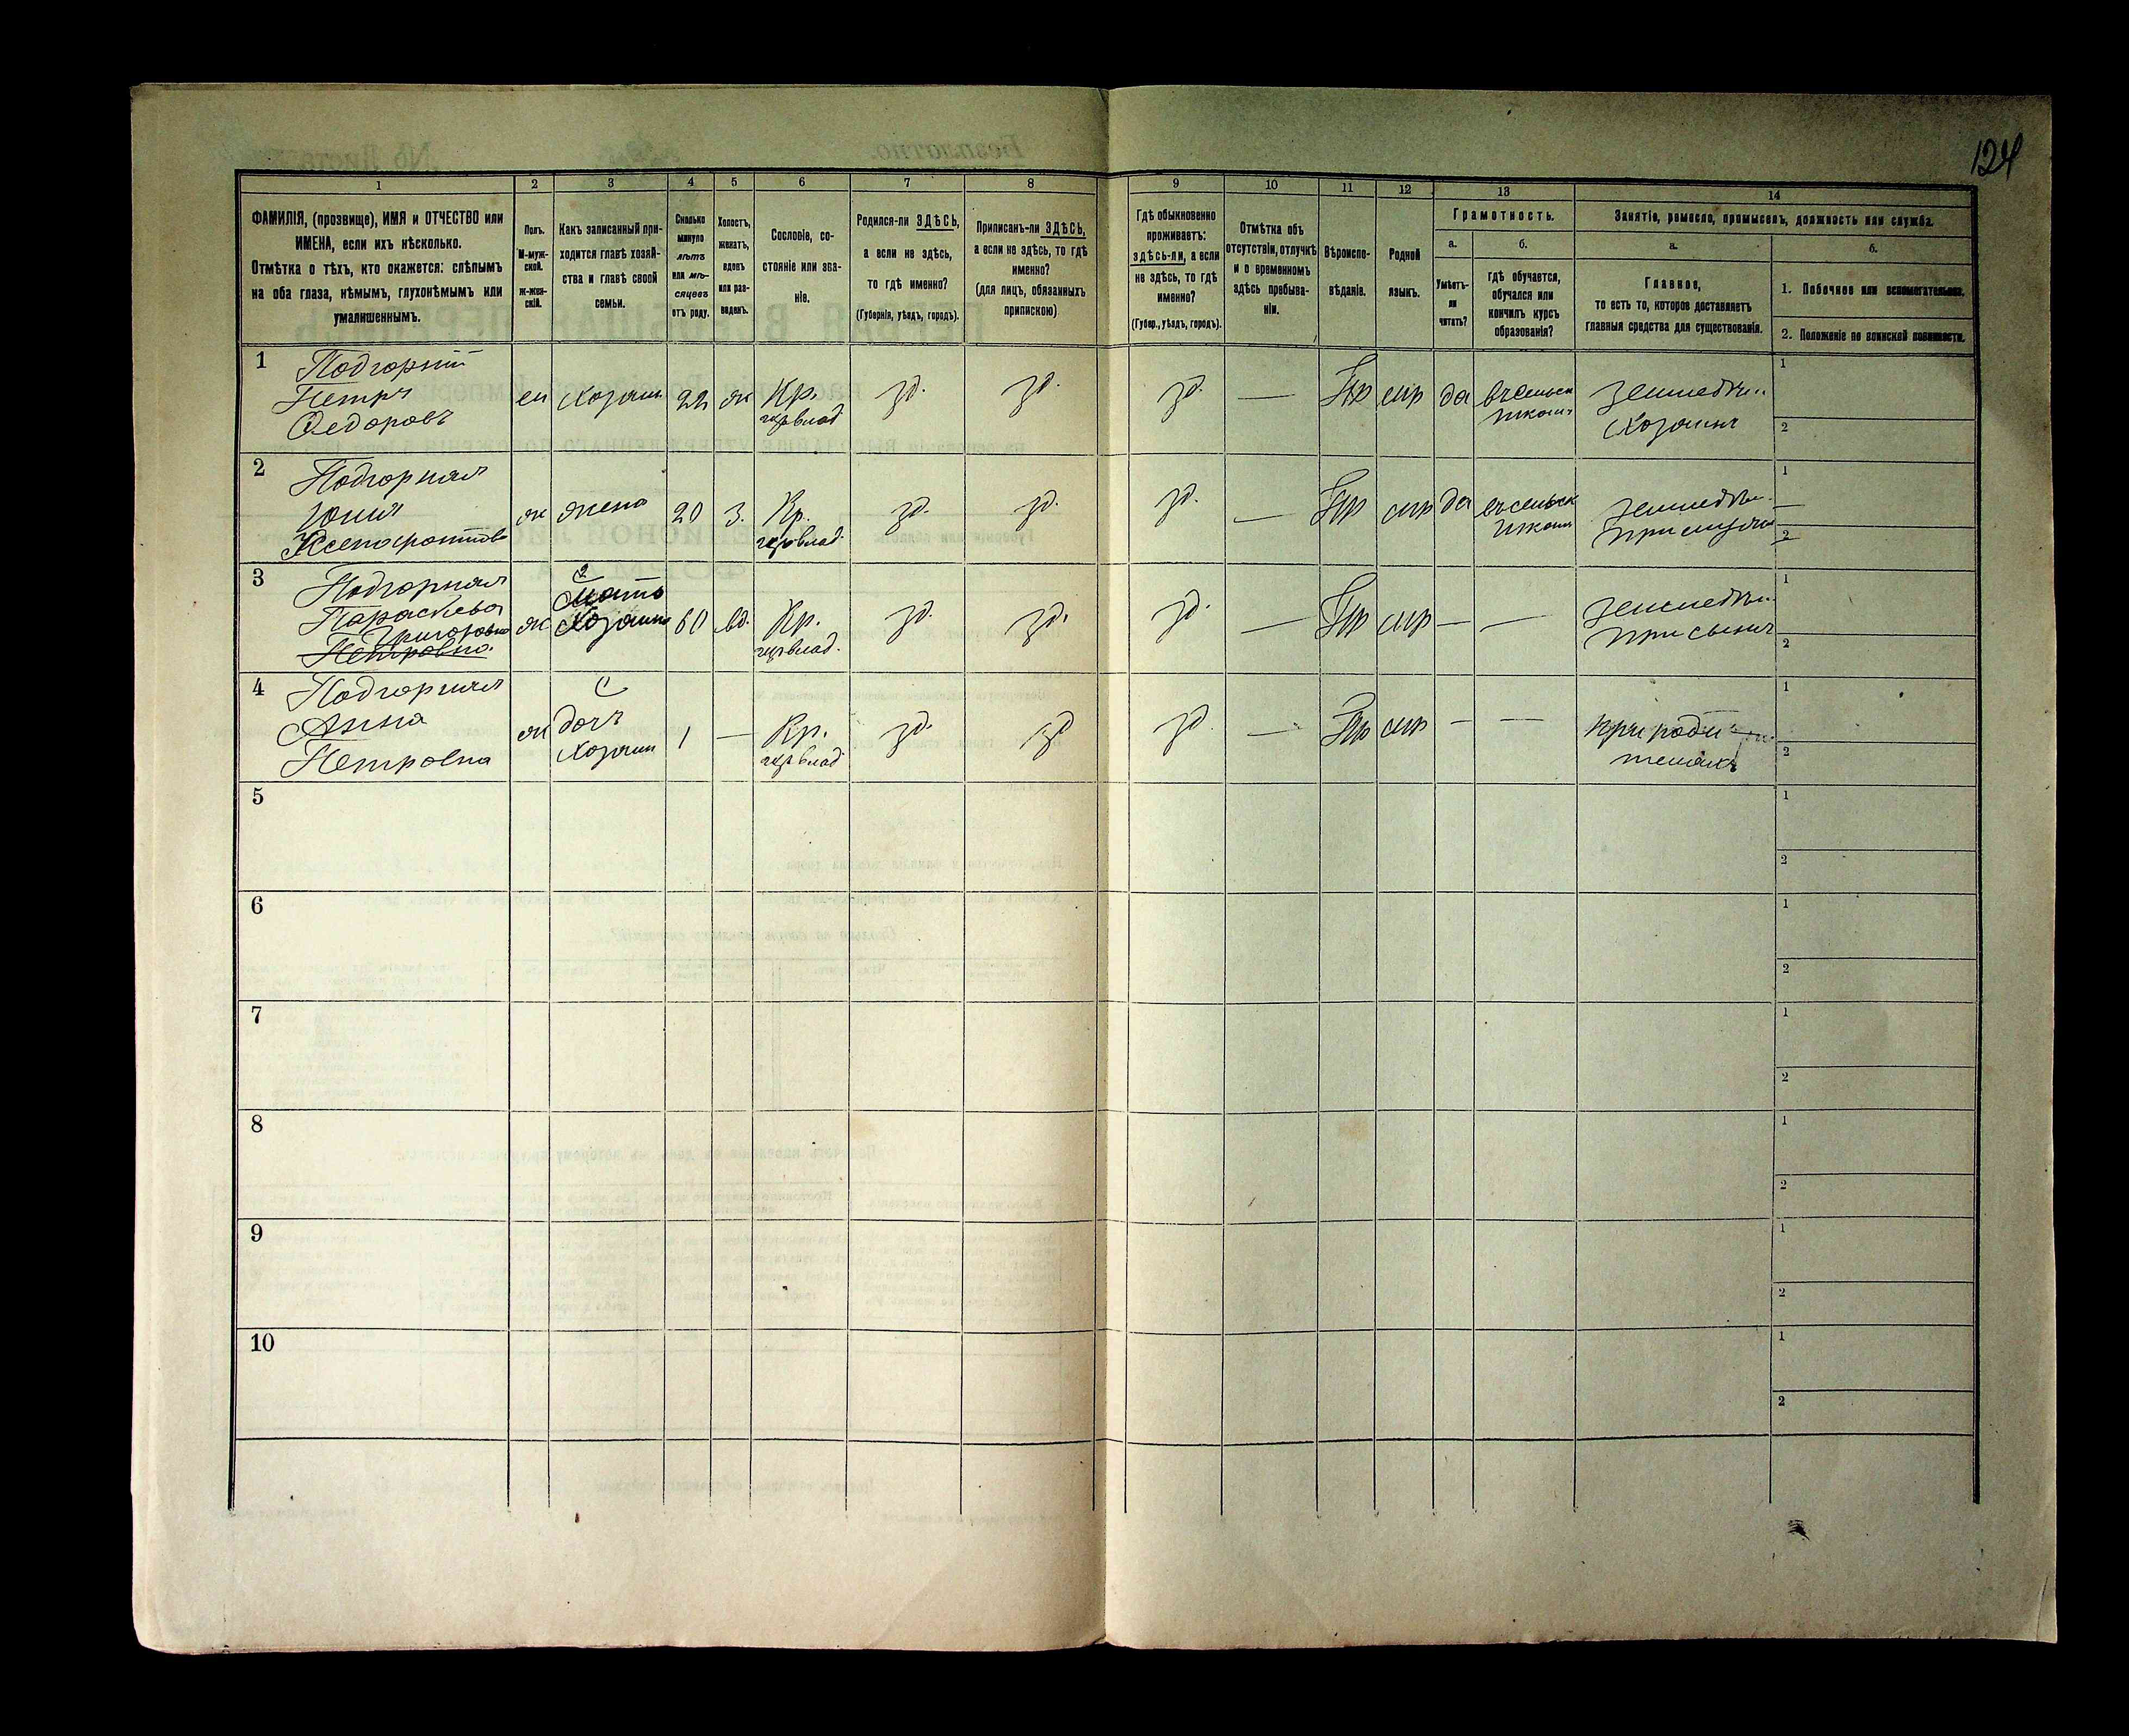 124
1
2
3
4
5
6
7
8
9
10
11
12
13
14
ФАМИЛІЯ, (прозвище), ИМЯ и ОТЧЕСТВО или
ИМЕНА, если ихъ нѣсколько.
Отмѣтка о тѣхъ, кто окажется: слѣпымъ
на оба глаза, нѣмымъ, глухонѣмымъ или
умалишеннымъ.
Полъ.
М-муж-
ской.
ж-жен-
скій.
Какъ записанный при-
ходится главѣ хозяй-
ства и главѣ своей
семьи.
Сколько
минуло
лѣтъ
или мѣ-
сяцевъ
отъ роду.
Холостъ,
женатъ,
вдовъ
или раз-
веденъ.
Сословіе, со-
стояніе или зва-
ніе.
Родился-ли ЗДѢСЬ,
а если не здѣсь,
то гдѣ именно?
(Губернія, уѣздъ, городъ).
Приписанъ-ли ЗДѢСЬ,
а если не здѣсь, то гдѣ
именно?
(для лицъ, обязанныхъ
припискою)
Гдѣ обыкновенно
проживаетъ:
здѣсь-ли, а если
не здѣсь, то гдѣ
именно?
(Губер., уѣздъ, городъ).
Отмѣтка объ
отсутствіи, отлучкѣ
и о временномъ
здѣсь пребыва-
ніи.
Вѣроиспо-
вѣданіе.
Родной
языкъ.
Грамотность.
а.
Умѣетъ-
ли
читать?
б.
гдѣ обучается,
обучался или
кончилъ курсъ
образованія?
Занятіе, ремесло, промыселъ, должность или служба.
а.
Главное,
то есть то, которое доставляетъ
главныя средства для существованія.
б.
1. Побочное или вспомогательное.
2. Положеніе по воинской повинности.
1
Подгорній
Петръ
Федоровъ
м хозяин 22 ж Кр.
зд. зд. зд. — Пр мр да въ сельск
школѣ
Земледѣл.
Хозяинъ
1
2
2
Подгорная
Юлія
Ксенофонтова
ж жена 20 з. Кр.
зд. зд. зд. — Пр мр да въ сельск
школѣ
Земледѣл.
при мужѣ
1
2
3
Подгорная
Параскева
Григоровна
Петровна
ж
2
Мать
Хозяина
60 вд. Кр.
зд. зд. зд. — Пр мр — —
Земледѣл.
при сынѣ
1
2
4
Подгорная
Анна
Петровна
ж
1
дочь
Хозяин
1 — Кр.
зд. зд зд. — Пр мр — —
при роди-
теляхъ
1
2
5
1
2
6
1
2
7
1
2
8
1
2
9
1
2
10
1
2